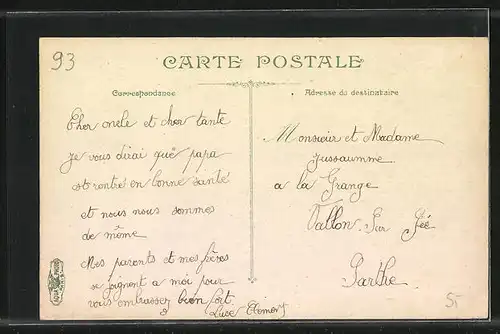 93
CARTE POSTALE
Correspondance
Adresse du destinataire
Cher oncle et cher tante
je vous dirai que papa
est rentré en bonne santé
et nous nous sommes
de même
Mes parents et mes frères
se joignent a moi pour
vous embrasser bien fort
Monsieur et Madame
Jussaumme
a la Grange
Vallon Sur Gée
Sarthe
5